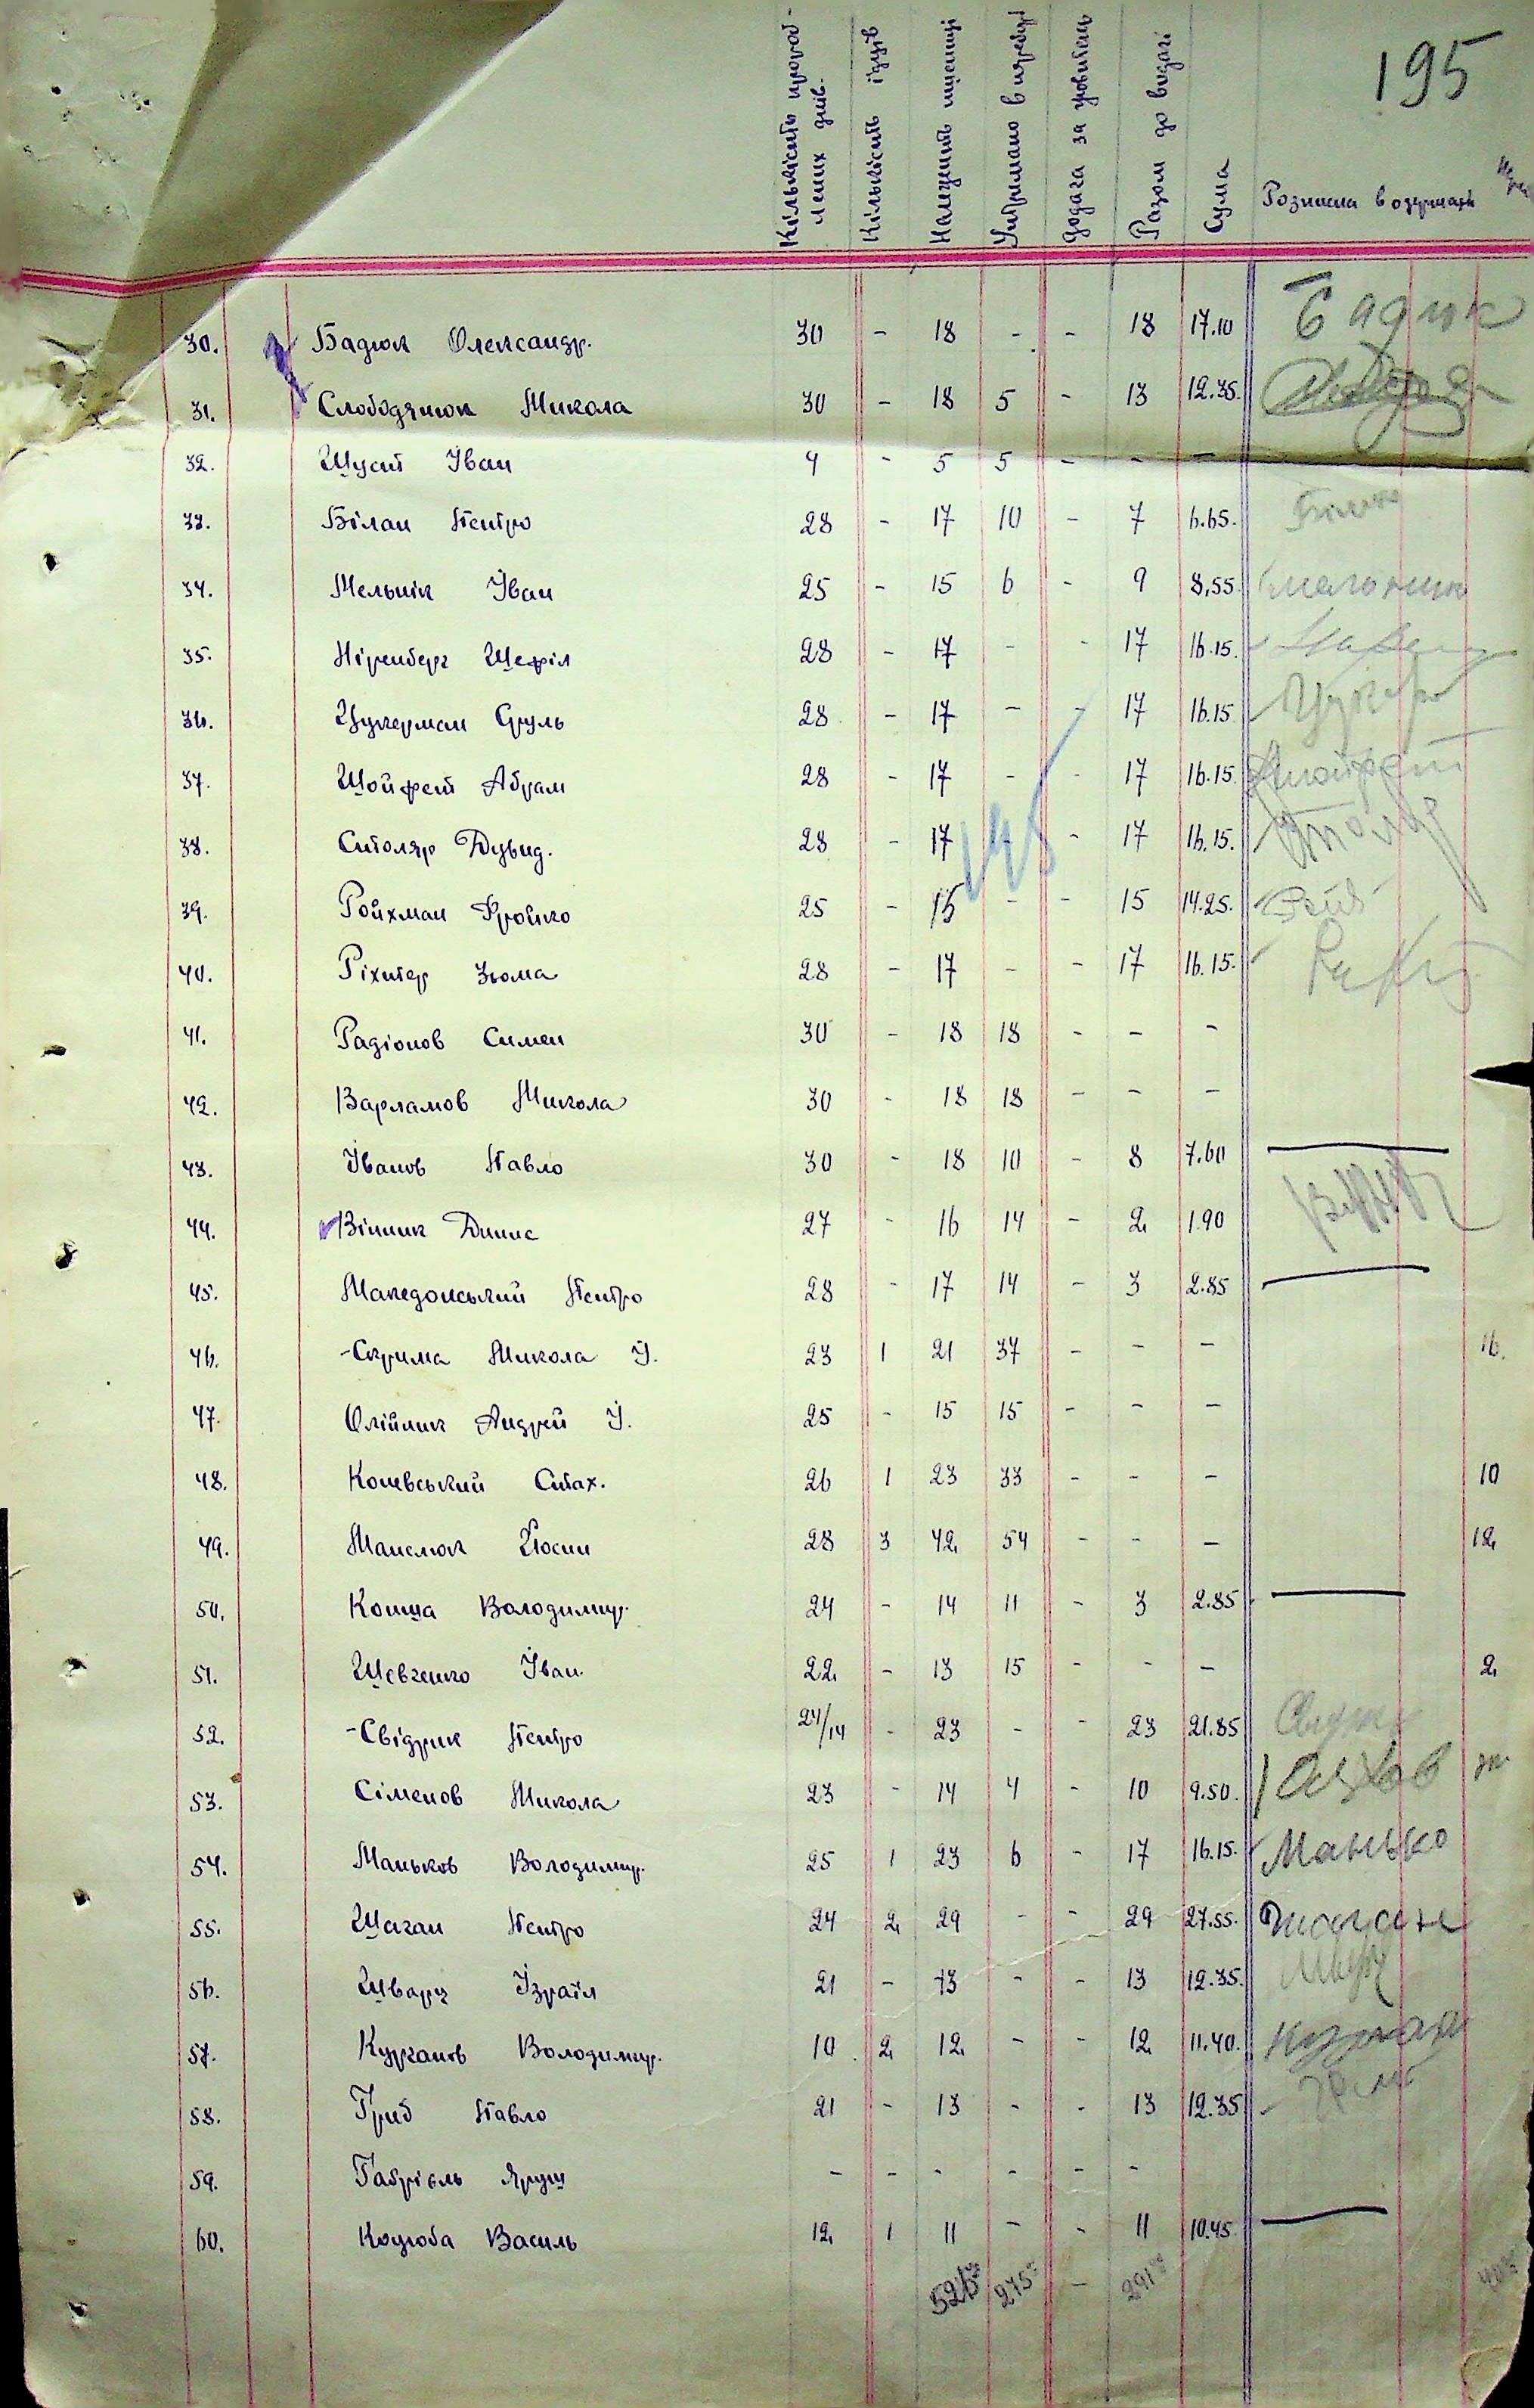 195
Кількість пророб-
лених днів.
Кількість їдців
Належить пшениці
Утримано в
Додача за
Разом до видачі
Сума
Розписка в одержані
30. Бадюк Олександр. 30 - 18 - - 18 17.10 Бадюк
31. Слободянюк Микола 30 - 18 5 - 13 12.35.
32. Шуст Іван 9 - 5 5 - - -
33. Білан Петро 28 - 17 10 - 7 6.65. Білан
34. Мельнік Іван 25 - 15 6 - 9 8,55
35. Ніренберг Шефіл 28 - 17 - - 17 16.15.
36. Цукерман Сруль 28 - 17 - - 17 16.15 Цукер
37. Шойфет Абрам 28 - 17 - - 17 16.15. Шойфет
38. Столяр Дувид. 28 - 17 - - 17 16.15. Столяр
39. Ройхман Фройко 25 - 15 - - 15 14.25.
40. Ріхтер Зюма 28 - 17 - - 17 16.15.
41. Радіонов Симен 30 - 18 18 - - -
42. Варламов Микола 30 - 18 18 - - -
43. Іванов Павло 30 - 18 10 - 8 7.60
44. Вінник Динис 27 - 16 14 - 2 1.90
45. Македонський Петро 28 - 17 14 - 3 2.85
46. -Скрима Микола І. 23 1 21 37 - - - 16.
47. Олійник Андрей І. 25 - 15 15 - - -
48. Коневський Стах. 26 1 23 33 - - - 10
49. Манелюк Йосип 28 3 42 54 - - - 12
50. Конша Володимир. 24 - 14 11 - 3 2.85
51. Шевченко Іван. 22 - 13 15 - - - 2
52. -Свідрик Петро 24/14 - 23 - - 23 21.85
53. Сіменов Микола 23 - 14 4 - 10 9.50.
54. Маньков Володимир. 25 1 23 6 - 17 16.15. Манько
55. Шаган Петро 24 2 29 - - 29 27.55. Шаган
56. Шварц Ізраїл 21 - 13 - - 13 12.35.
57. Курганов Володимир. 10 2 12 - - 12 11.40.
58. Гриб Павло 21 - 13 - - 13 12.35
59. Габрієль Яруш - - - - - -
60. Коцюба Василь 12 1 11 - - 11 10.45
526 275 - 291